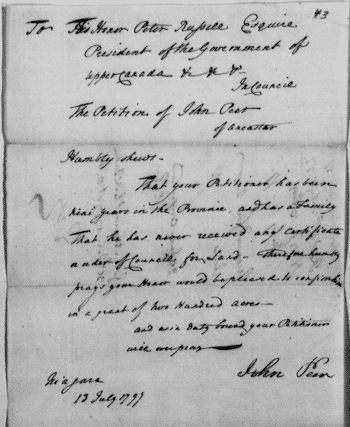 43
To His Honor Peter Russell Esquire
President of the Government of
Upper Canada &c &c &c
In Council
The Petition of John Peer
of Ancaster
Humbly shews -
That your Petitioner has been
nine years in the Province, and has a Family
That he has never received any Certificate
or order of Council for Land - Therefore humbly
prays your Honor would be pleased to confirm him
in a grant of two Hundred acres -
and as in duty bound your Petitioner
will ever pray
John Peer
Niagara
13 July 1797